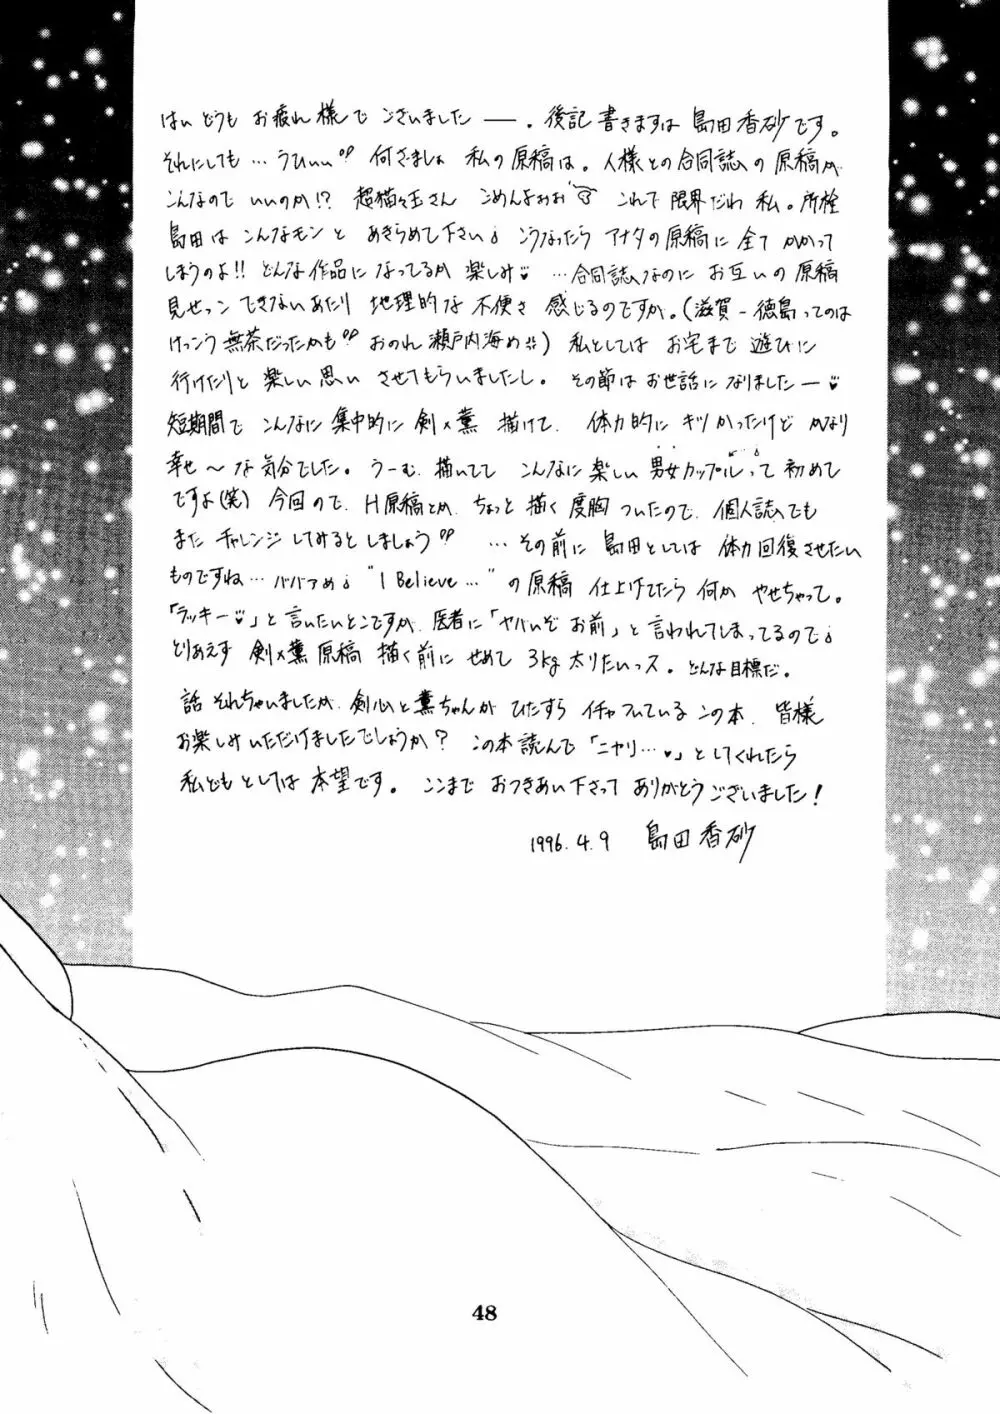 はい どうも お疲れ様で ございました ――. 後記 書きますは 島田香砂です。
それにしても… うひぃぃ 何さましょ 私の原稿は。人様との合同誌の原稿が
こんなので いいのか!? 超猫々玉さん ごめんよぉぉ これで 限界だわ 私。所栓
島田は こんなモンと あきらめて下さい こうなったら アナタの原稿に 全て かかって
しまうのよ!! どんな作品に なってるか 楽しみ♥ …合同誌なのに お互いの 原稿
見せっこ できないあたり 地理的な 不便さ 感じるのですが。(滋賀-徳島ってのは
けっこう 無茶だったかも おのれ 瀬戸内海め) 私としては お宅まで 遊びに
行けたりと 楽しい思い させてもらいましたし。その節は お世話に なりましたー♥
短期間で こんなに 集中的に 剣×薫 描けて. 体力的に キツかったけど かなり
幸せ〜な気分でした。うーむ. 描いてて こんなに 楽しい 男女カップルって 初めて
ですよ(笑) 今回ので. H原稿とか. ちょっと 描く 度胸 ついたので. 個人誌でも
また チャレンジ してみると しましょう …その前に 島田としては 体力回復させたい
ものですね… ババァめ "I Believe…"の原稿 仕上げてたら 何か やせちゃって。
「ラッキー♥」と 言いたいとこですが. 医者に「ヤバいぞ お前」と 言われてしまってるので
とりあえず 剣×薫 原稿 描く前に せめて 3kg 太りたいっス。どんな目標だ。
話 それちゃいましたが. 剣心と 薫ちゃんが ひたすら イチャついている この本. 皆様
お楽しみいただけましたでしょうか? この本読んで「ニヤリ…♥」としてくれたら
私どもとしては 本望です。ここまで おつきあい下さって ありがとうございました!
1996.4.9 島田香砂
48